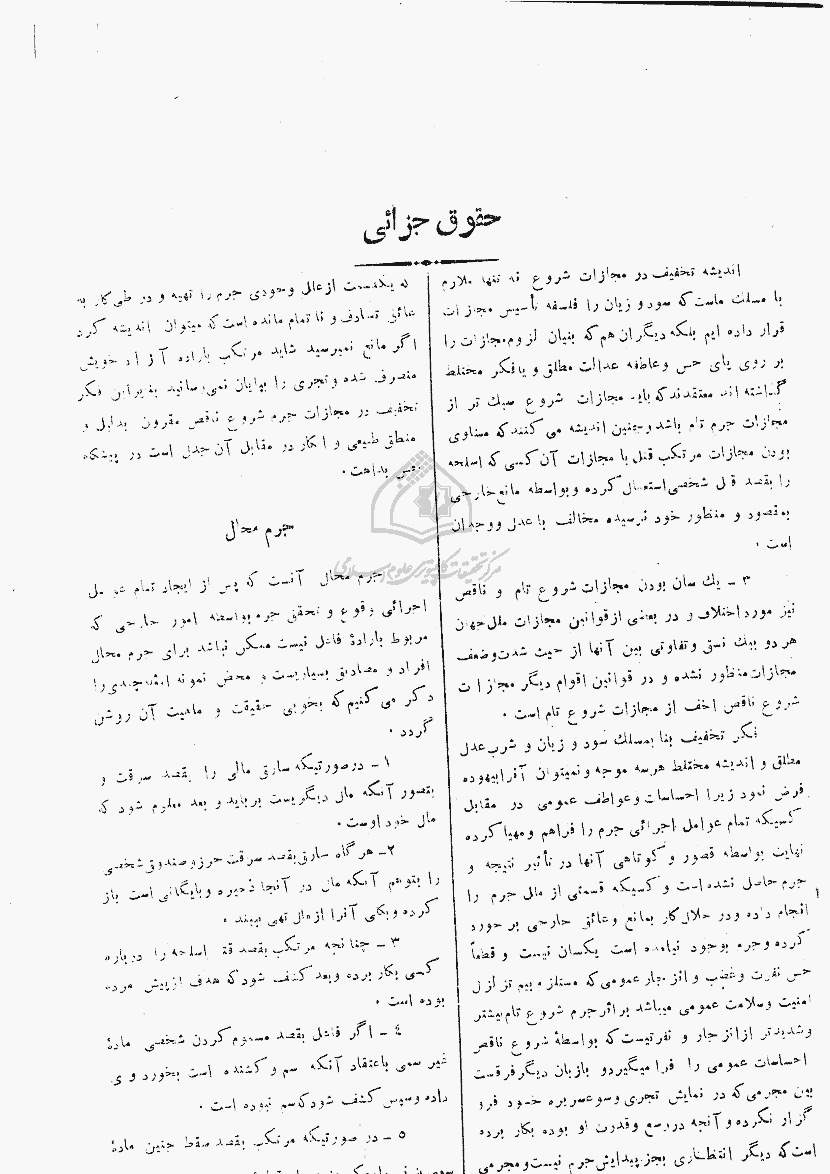 حقوق جزائی
اندیشه تخفیف در مجازات شروع نه تنها ملازم
با مسلك ماست که سود و زیان را فلسفه تأسیس مجازات
قرار داده ایم بلکه دیگران هم که بنیان لزوم مجازات را
بر روی پای حس و عاطفه عدالت مطلق و یا فکر مختلط
گذاشته اند معتقدند که باید مجازات شروع سبك تر از
مجازات جرم تام باشد و چنین اندیشه می کنند که مساوی
بودن مجازات مرتکب قتل با مجازات آن کسی که اسلحه
را بقصد قتل شخصی استعمال کرده و بواسطه مانع خارجی
بمقصود و منظور خود نرسیده مخالف با عدل و وجدان
است .
۳ ـ يك سان بودن مجازات شروع تام و ناقص
نیز مورد اختلاف و در بعضی از قوانین مجازات ملل جهان
هر دو بيك نسق و تفاوتی بین آنها از حیث شدت و ضعف
مجازات منظور نشده و در قوانین اقوام دیگر مجازات
شروع ناقص اخف از مجازات شروع تام است .
فکر تخفیف بنا بمسلك سود و زیان و شرب عدل
مطلق و اندیشه مختلط هر سه موجه و نمیتوان آنرا بیهوده
فرض نمود زیرا احساسات و عواطف عمومی در مقابل
کسیکه تمام عوامل اجرائی جرم را فراهم و مهیا کرده
نهایت بواسطه قصور و کوتاهی آنها در تأثیر نتیجه و
جرم حاصل نشده است و کسیکه قسمتی از مال جرم را
انجام داده و در خلال کار بمانع و عائق خارجی بر خورد
کرده و جرم بوجود نیامده است یکسان نیست و قطعاً
حس نفرت و غضب و انزجار عمومی که مستلزم بیم تزلزل
امنیت و سلامت عمومی میباشد بر اثر جرم شروع تام بیشتر
و شدیدتر از انزجار و نفرتیست که بواسطهٔ شروع ناقص
احساسات عمومی را فرا میگیرد و بازبان دیگر فرقست
بین مجرمی که در نمایش تجری و سوء سریره خود فرو
گزار نکرده و آنچه در وسع و قدرت او بوده بکار برده
است که دیگر انتظاری بجز پیدایش جرم نیست و مجرمی
که یکقسمت از عالی وجودی جرم را تهیه و در طی کار به
عائق تصادف و نا تمام مانده است که میتوان اندیشه کرد
اگر مانع نمیرسید شاید مرتکب باراده آزاد خویش
منصرف شده و تجری را بپایان نمی رسانید بنابراین فکر
تخفیف در مجازات جرم شروع ناقص مقرون بدلیل و
منطق طبیعی و انکار در مقابل آن جدل است در پیشگاه
نفس بداهت .
جرم محال
جرم محال آنست که پس از ایجاد تمام عوامل
اجرائی وقوع و تحقق جرم بواسطه امور خارجی که
مربوط بارادهٔ فاعل نیست ممکن نباشد برای جرم محال
افراد و مصادیق بسیاریست و محض نمونه امثله چندی را
ذکر می کنیم که بخوبی حقیقت و ماهیت آن روشن
گردد .
۱ ـ در صورتیکه سارق مالی را بقصد سرقت و
بتصور آنکه مال دیگریست برباید و بعد معلوم شود که
مال خود اوست .
۲ ـ هر گاه سارق بقصد سرقت حرز و صندوق شخصی
را بتوهم آنکه مال در آنجا ذخیره و بایگانی است باز
کرده و بکی آنرا از مال تهی ببیند .
۳ ـ چنانچه مرتکب بقصد قتل اسلحه را درباره
کسی بکار برده و بعد کشف شود که هدف از پیش مرده
بوده است .
٤ ـ اگر فاعل بقصد مسموم کردن شخصی مادهٔ
غیر سمی باعتقاد آنکه سم و کشنده است بخورد وی
داده و سپس کشف شود که سم نبوده است .
٥ ـ در صورتیکه مرتکب بقصد سقط جنین مادهٔ
مرکز تحقیقات کامپیوتری علوم اسلامی